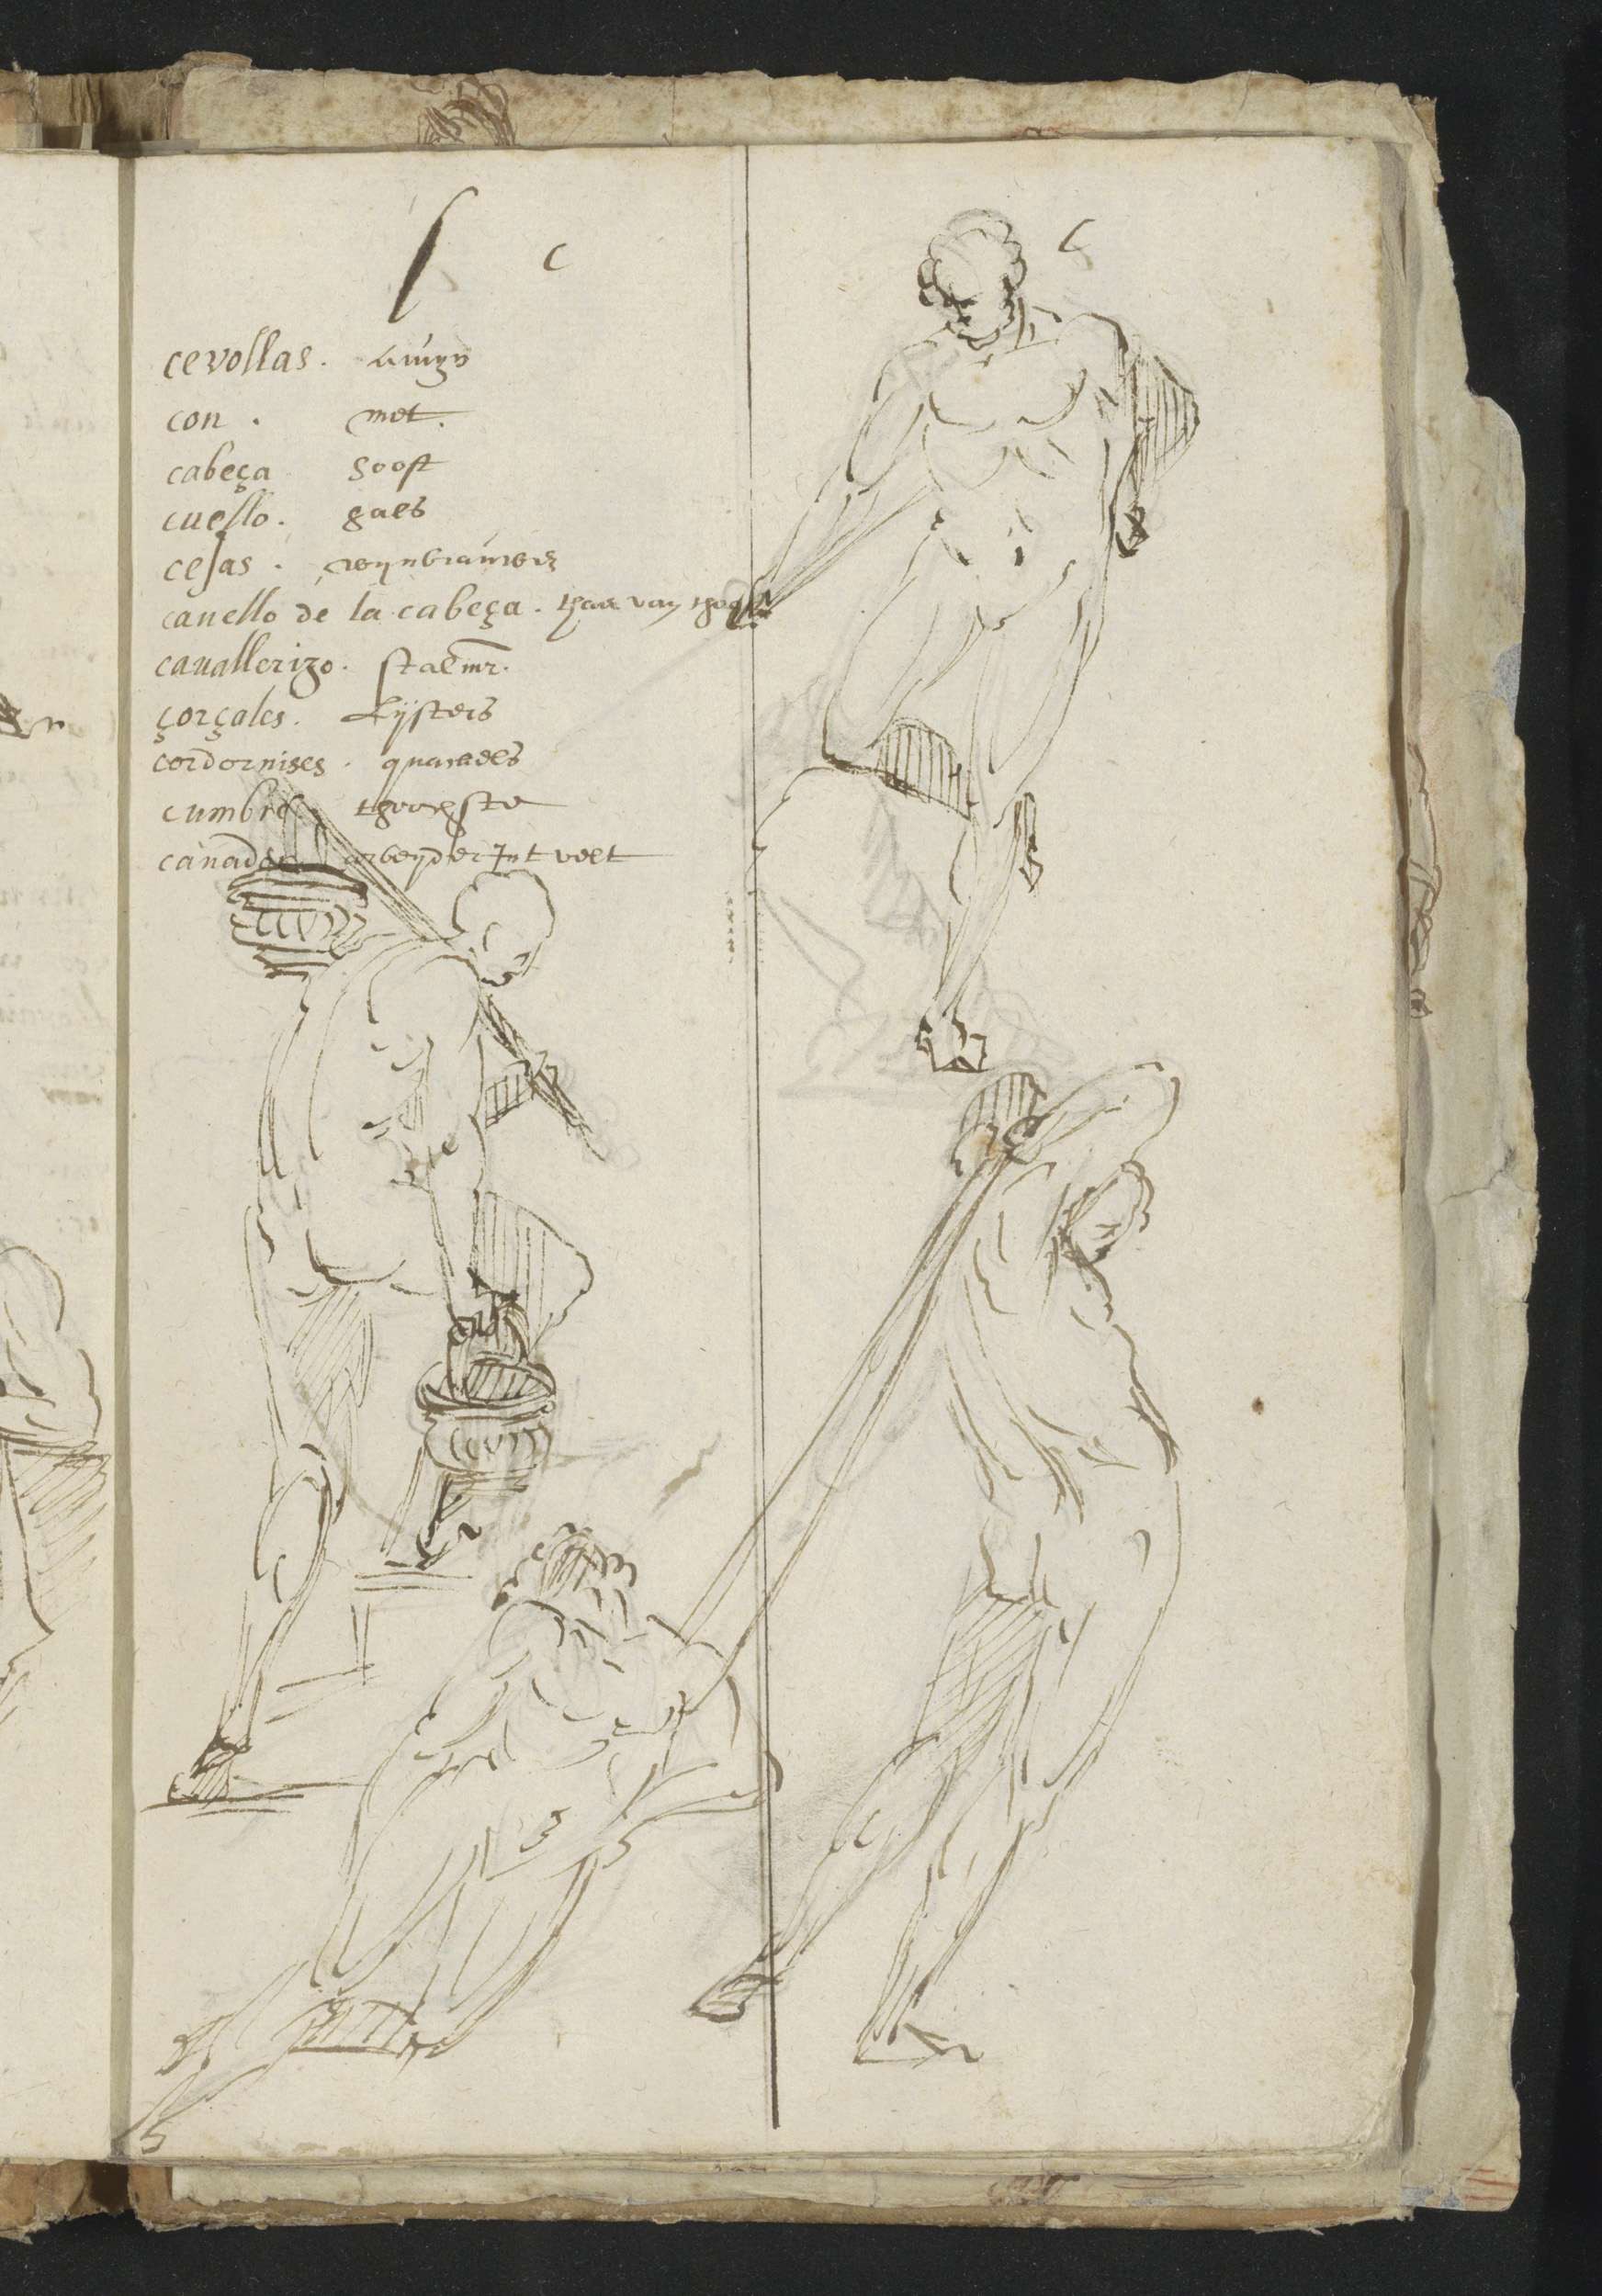 C C
cevollas. aiuyn
con. met.
cabeça hooft
cuello. hals
cejas. wynbrauwen
cauello de la cabeça. thaer van thooft
cauallerizo. stalmr.
çorçales. Lijsters
cordornises. quackels
cumbre thoochste
cauador arbeyder Int velt